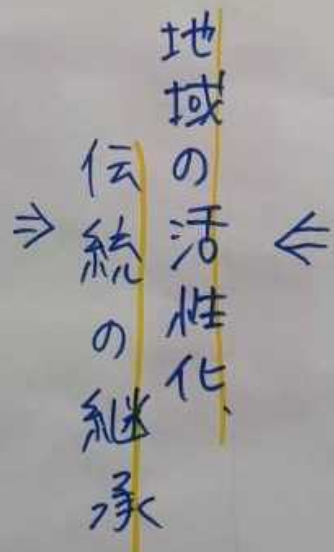 地域の活性化、
伝統の継承